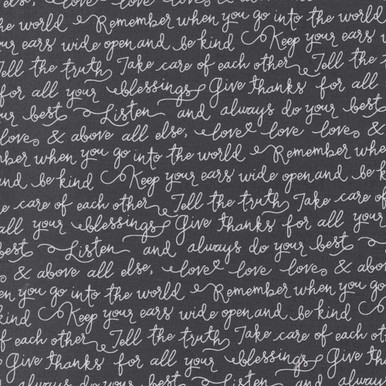 else, love love love & above all
Remember when you go into the world
your ears wide open and be kind Keep your ears
Tell the truth Take care of each other Tell the
for all your blessings Give thanks for
your best Listen and always do your best
love & above all else, love love love &
ember when you go into the world Remember when
and be kind Keep your ears wide open and be k
care of each other Tell the truth Take care
your blessings Give thanks for all your
best Listen and always do your best
& above all else, love love love & abo
en you go into the world Remember when you g
kind Keep your ears wide open and be kind
each other Tell the truth Take care of each ot
Give thanks for all your blessings Give th
always do your best Listen and always do